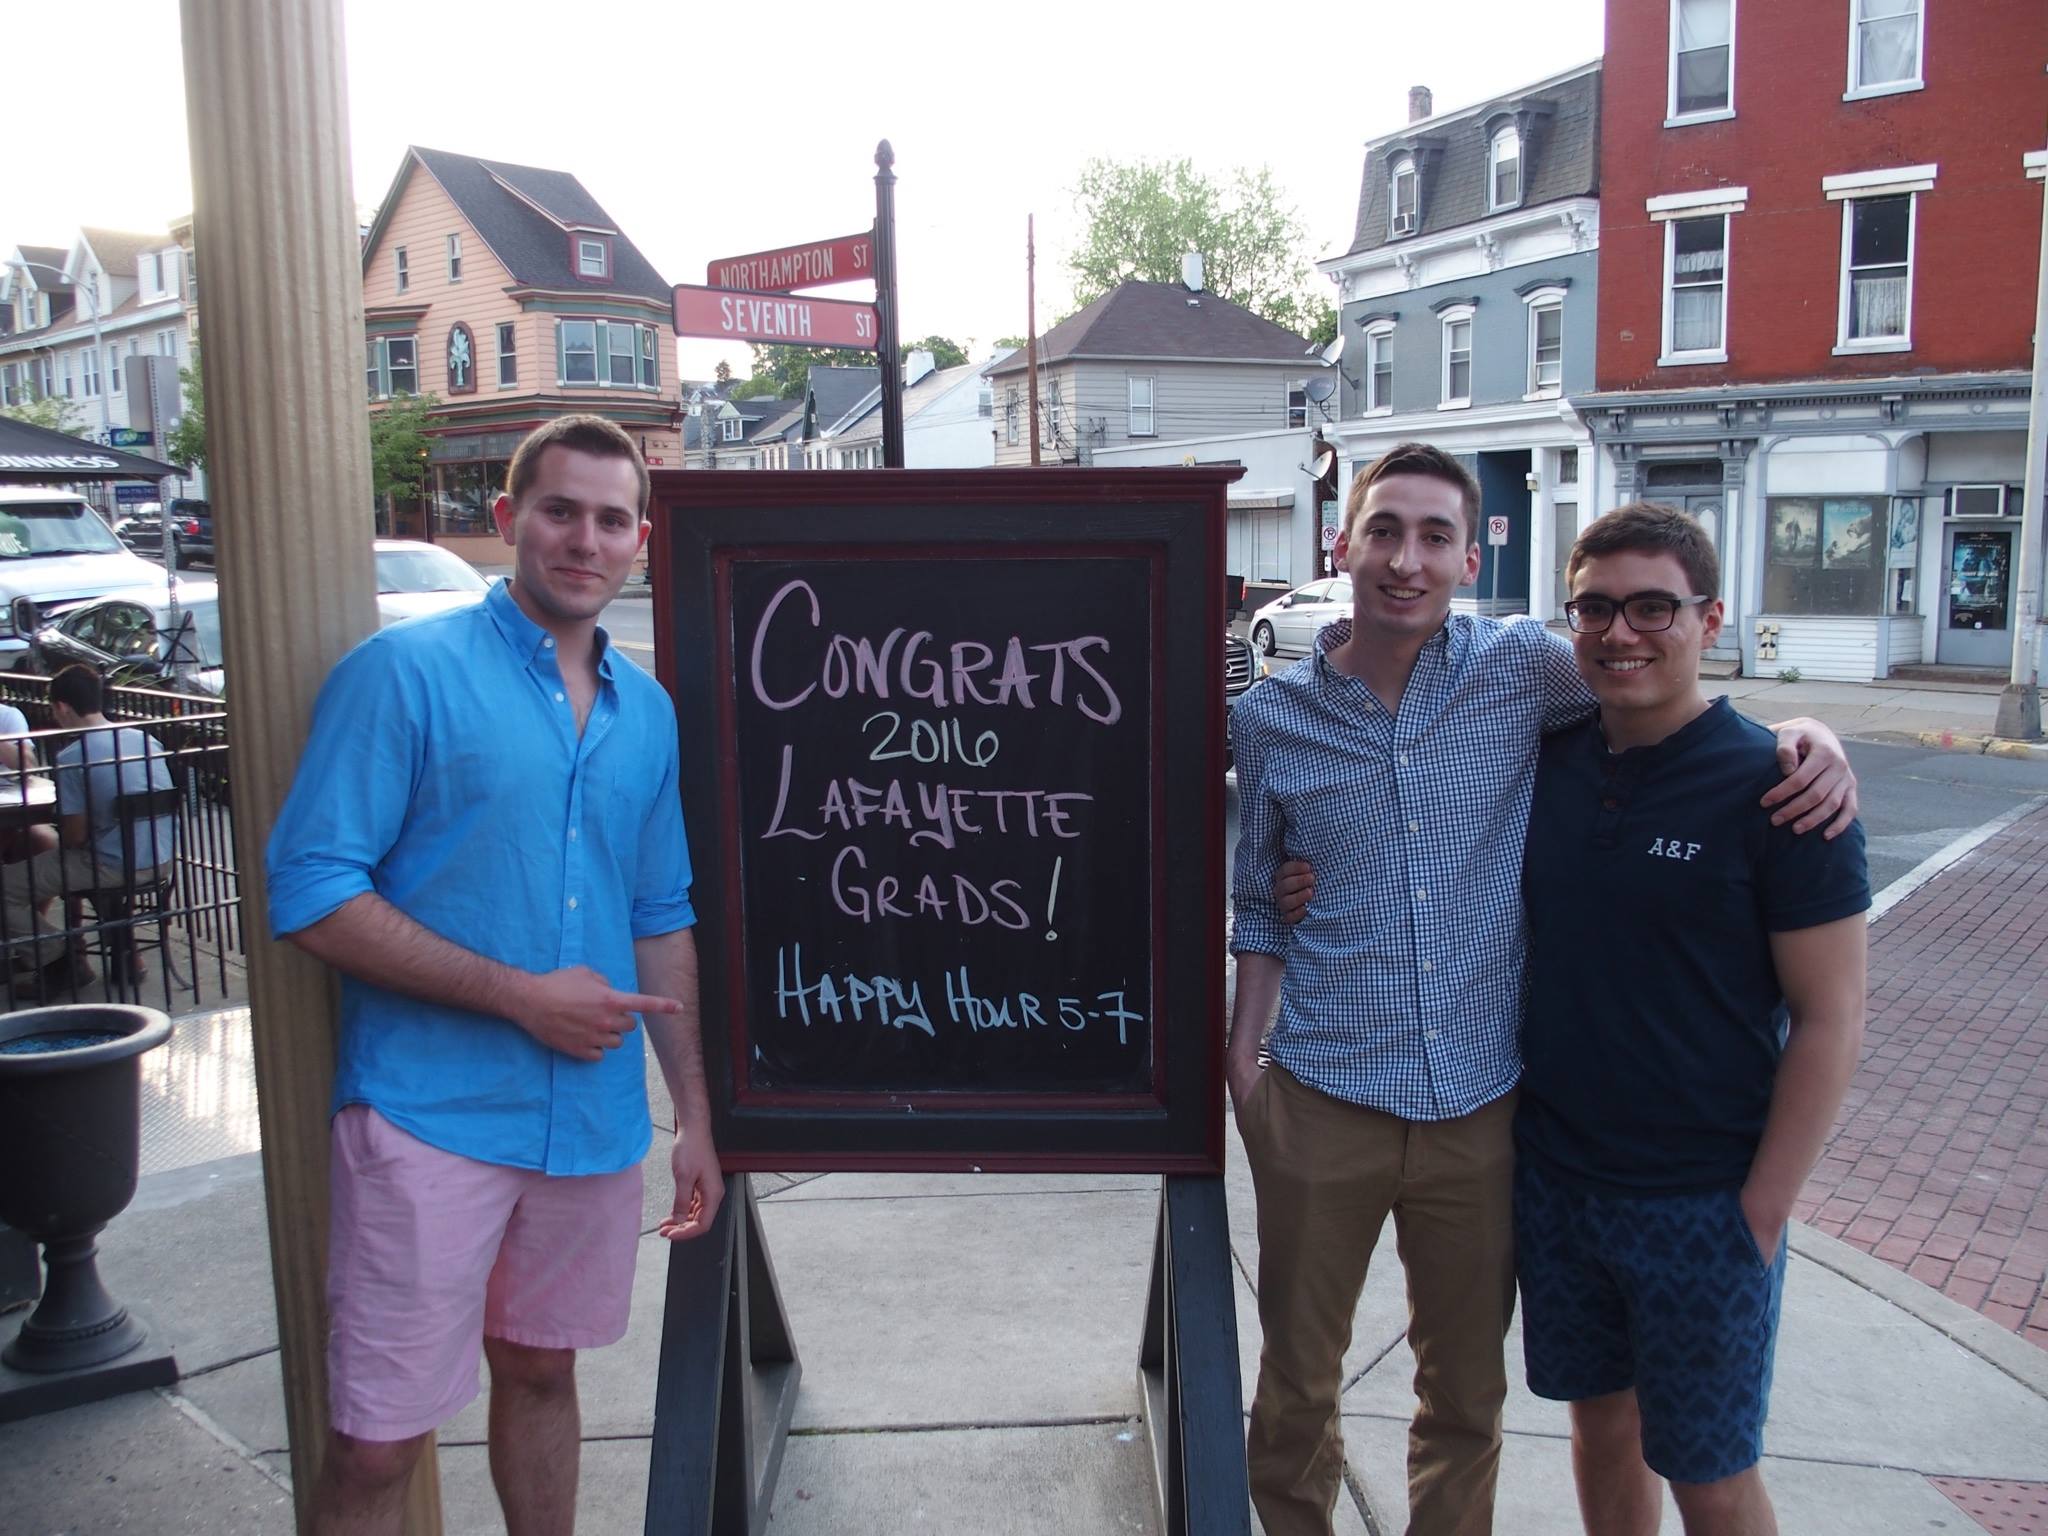 NORTHAMPTON ST
SEVENTH ST
CONGRATS
2016
LAFAYETTE
GRADS!
HAPPY HOUR 5-7
A&F